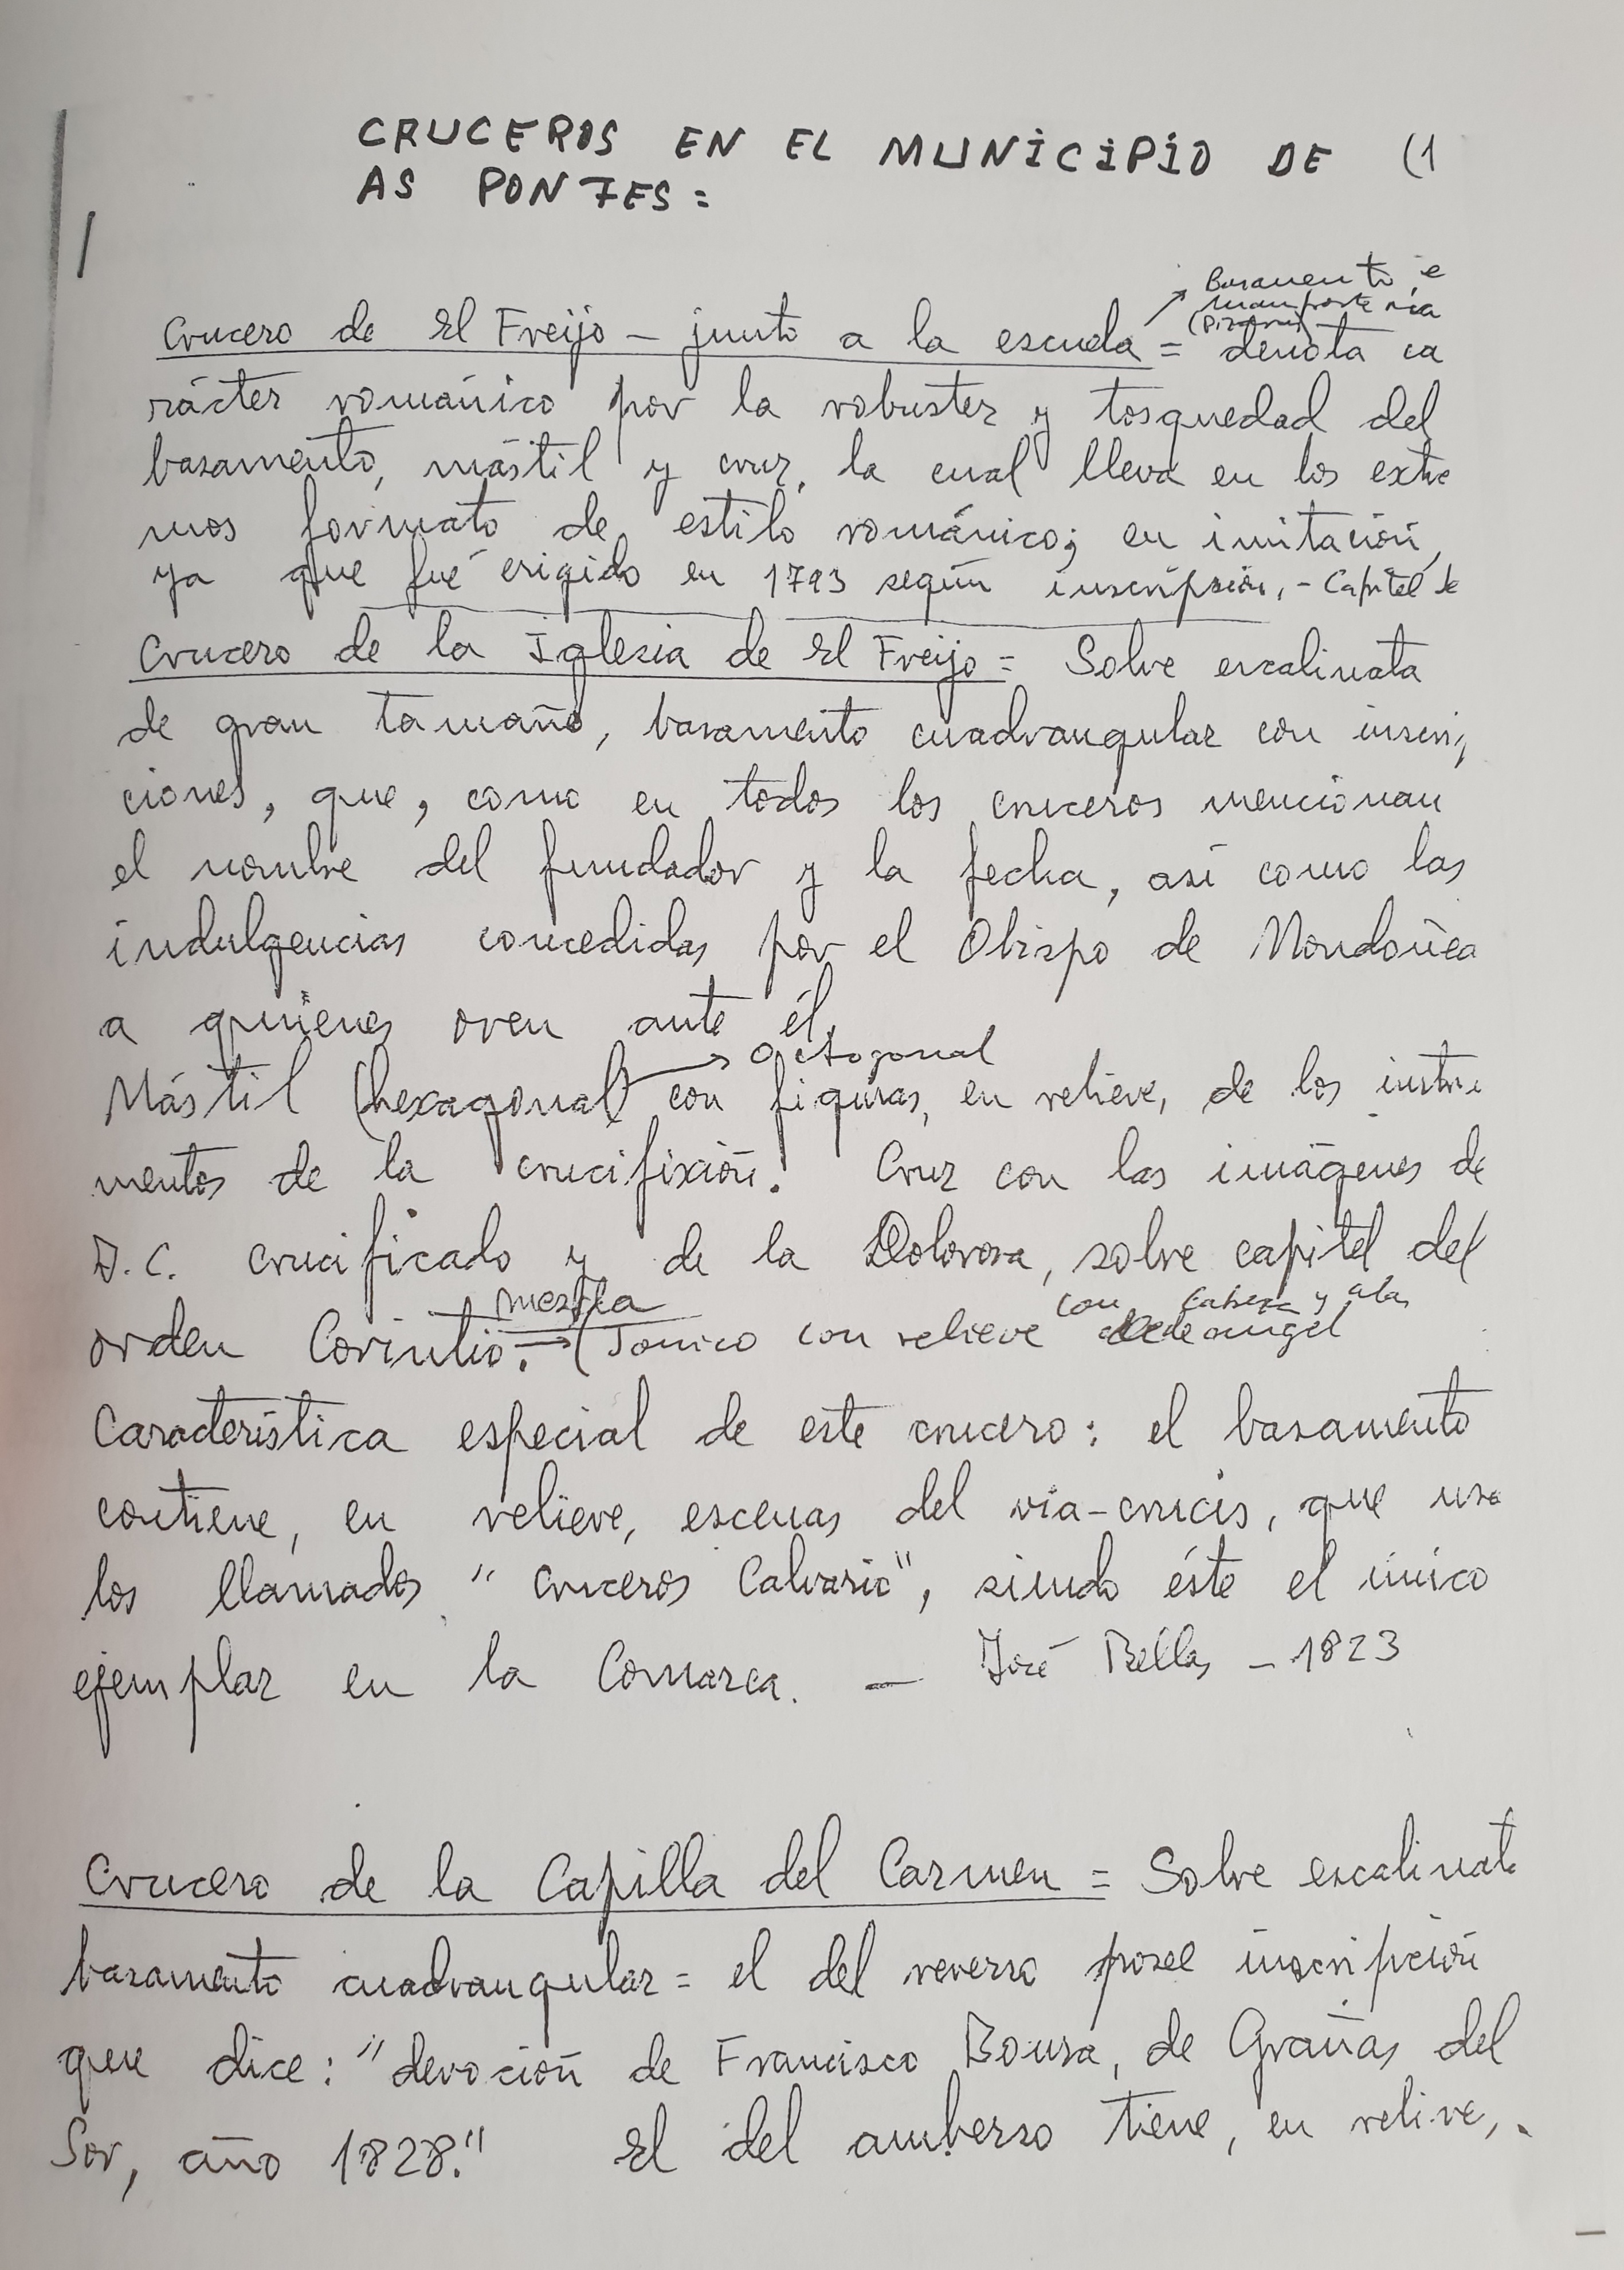 CRUCEROS EN EL MUNICIPIO DE (1
AS PONTES=
Basamento, e
mamposteria
(pizarra)
Crucero de El Freijo - junto a la escuela = denota ca
rácter románico por la robustez y tosquedad del
basamento, mástil y cruz, la cual lleva en los extre
mos formato de estilo románico; en imitación,
ya que fué erigido en 1793 según inscripción, - Capitel de
Crucero de la Iglesia de El Freijo = Sobre escalinata
de gran tamaño, basamento cuadrangular con inscrip
ciones, que, como en todos los cruceros mencionan
el nombre del fundador y la fecha, así como las
indulgencias concedidas por el Obispo de Mondoñeo
a quienes oren ante él.
octogonal
Mástil (hexagonal) con figuras, en relieve, de los instru
mentos de la crucifixión. Cruz con las imágenes de
J.C. crucificado y de la Dolorosa, sobre capitel del
mezcla con cabeza y alas
orden Corintio. (Jonico con relieve de angel
Característica especial de este crucero: el basamento
contiene, en relieve, escenas del via-crucis, que usa
los llamados "cruceros Calvario", siendo éste el único
ejemplar en la Comarca. - José Bellas - 1823
Crucero de la Capilla del Carmen = Sobre escalinata
basamento cuadrangular = el del reverso posee inscripción
que dice: "devoción de Francisco Bouza, de Grañas del
Sor, año 1828." El del amberso tiene, en relieve,